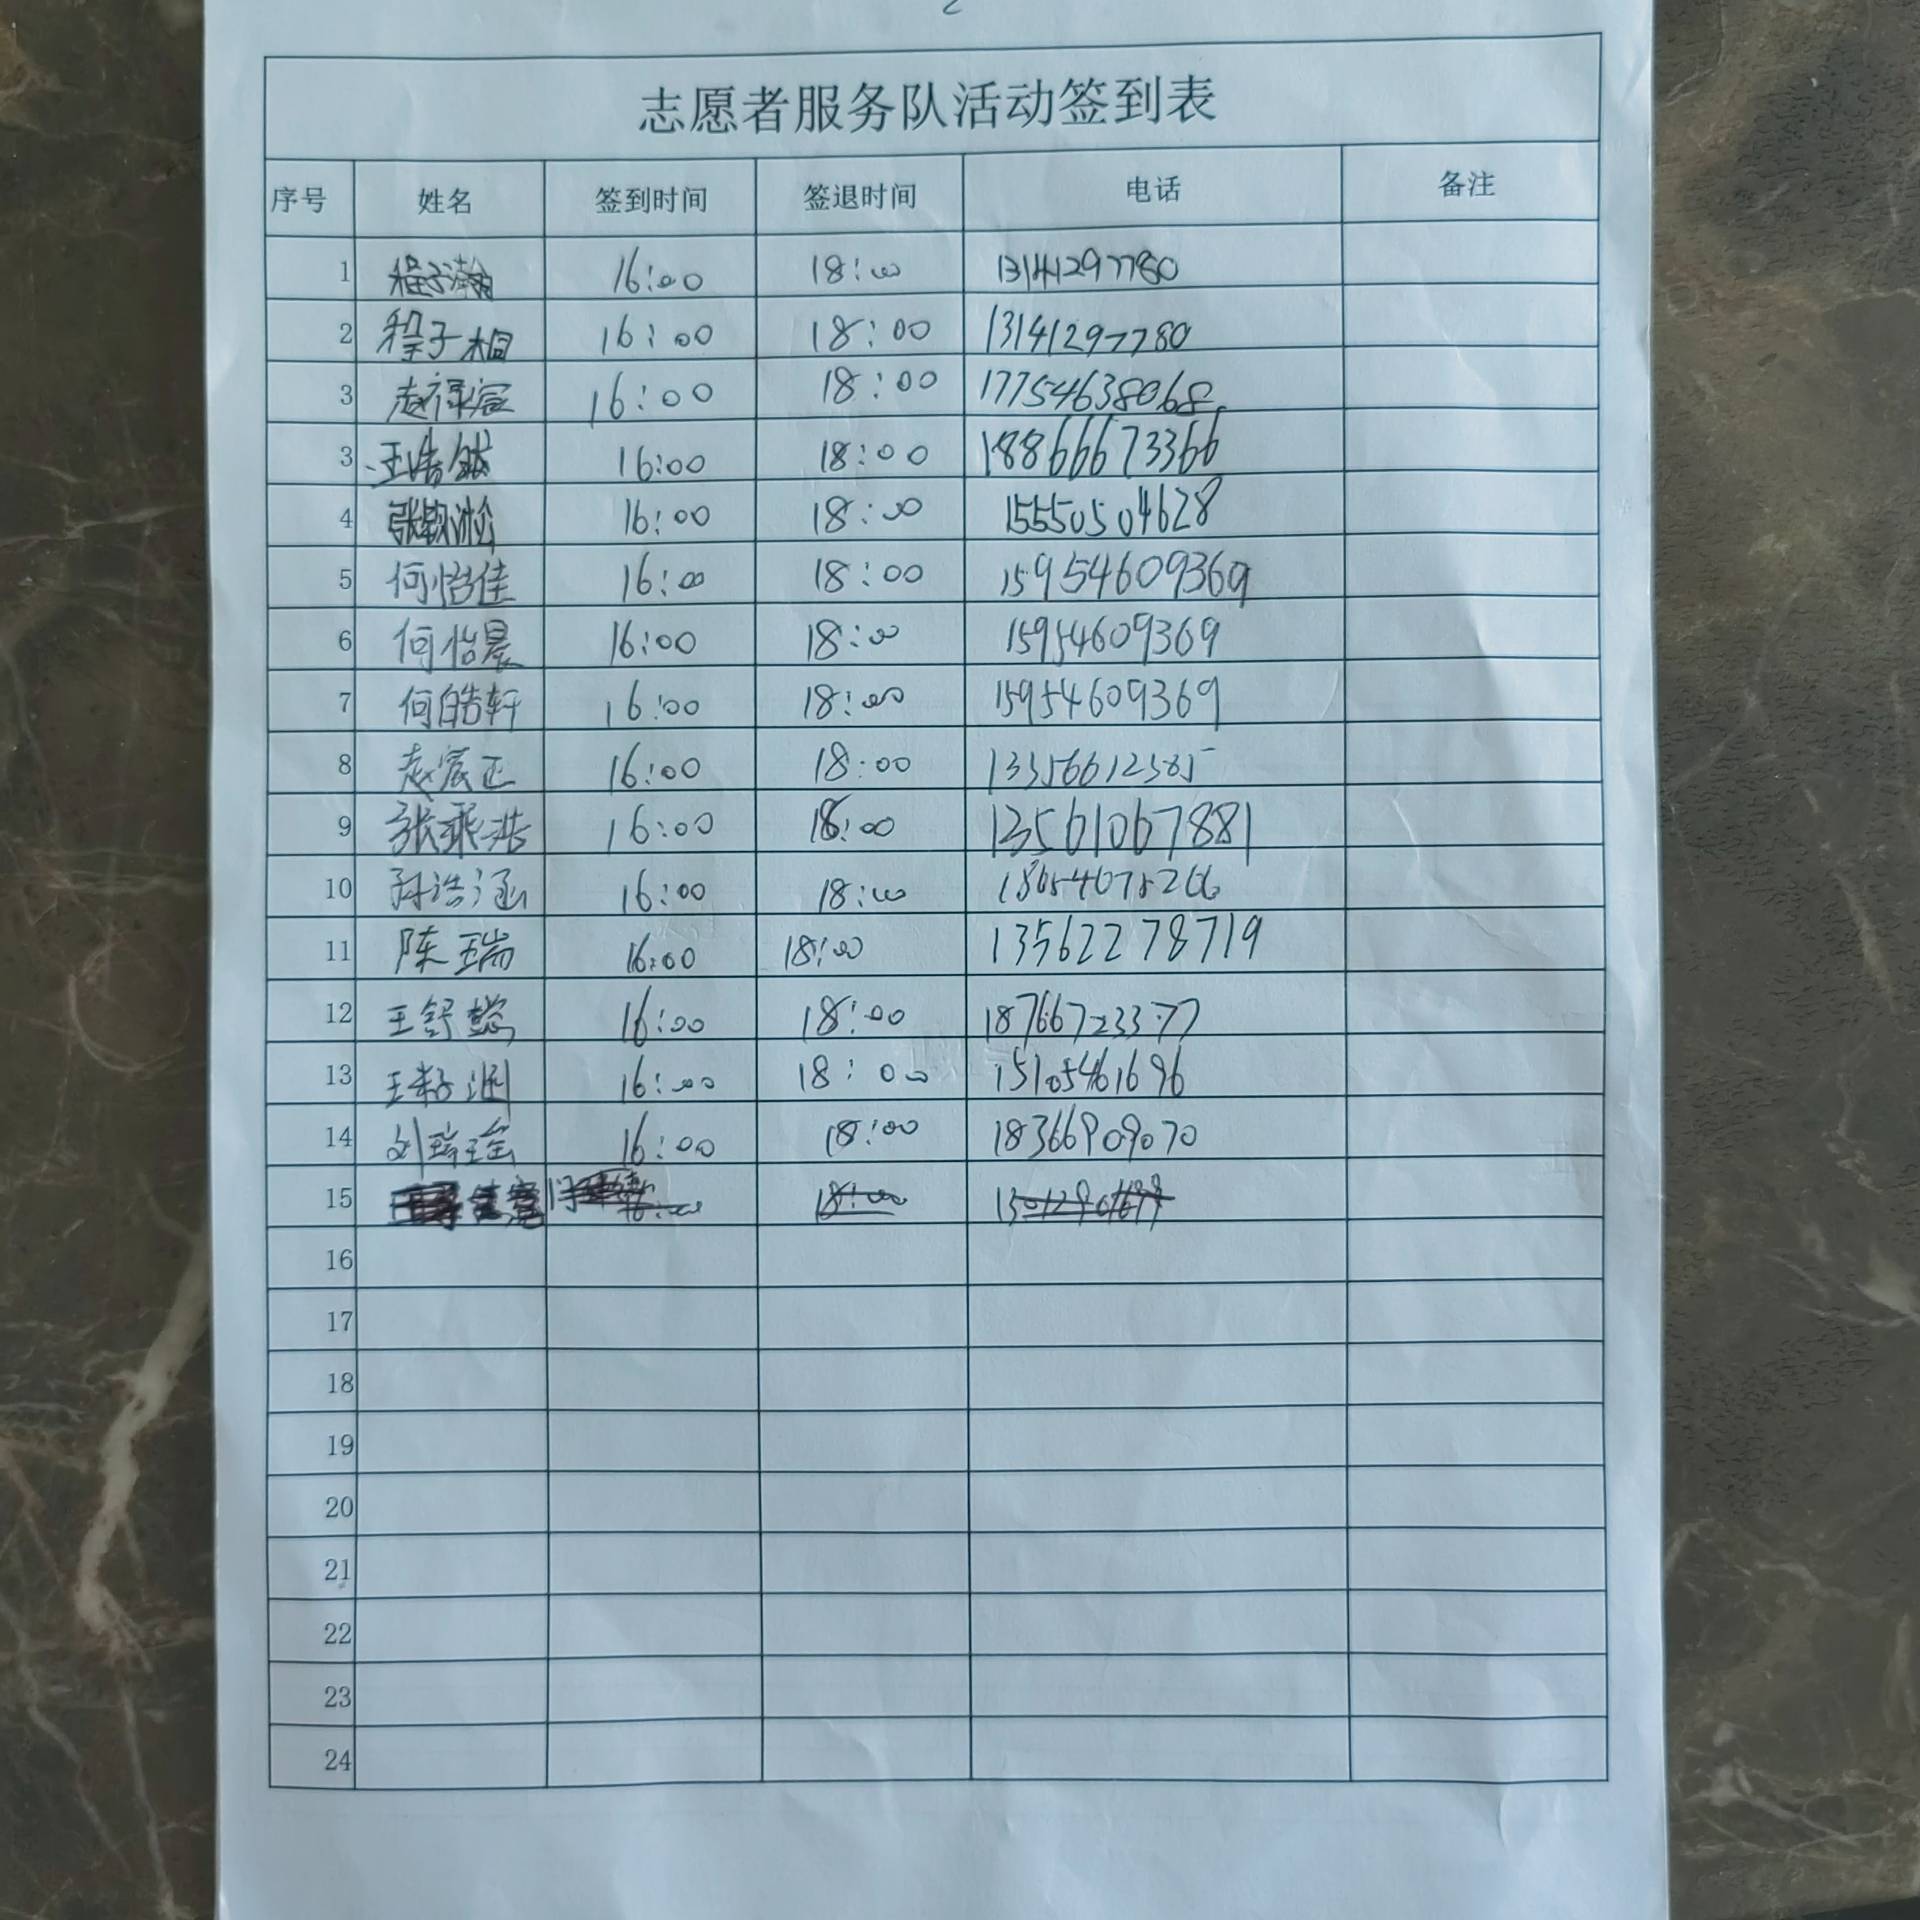 志愿者服务队活动签到表
序号 姓名 签到时间 签退时间 电话 备注
1 程子瀚 16:00 18:00 13141297780
2 程子桐 16:00 18:00 13141297780
3 赵禄宸 16:00 18:00 17754638068
3 王浩然 16:00 18:00 18866673366
4 16:00 18:00 15550504628
5 何怡佳 16:00 18:00 15954609369
6 何怡晨 16:00 18:00 15954609369
7 何皓轩 16:00 18:00 15954609369
8 赵宸正 16:00 18:00
9 张乘浩 16:00 18:00 13561067881
10 孙浩涵 16:00 18:00
11 陈瑞 16:00 18:00 13562278719
12 王舒懿 16:00 18:00 18766723377
13 16:00 18:00 15105461696
14 刘瑞瑶 16:00 18:00 18366909070
15 16:00 18:00
16
17
18
19
20
21
22
23
24